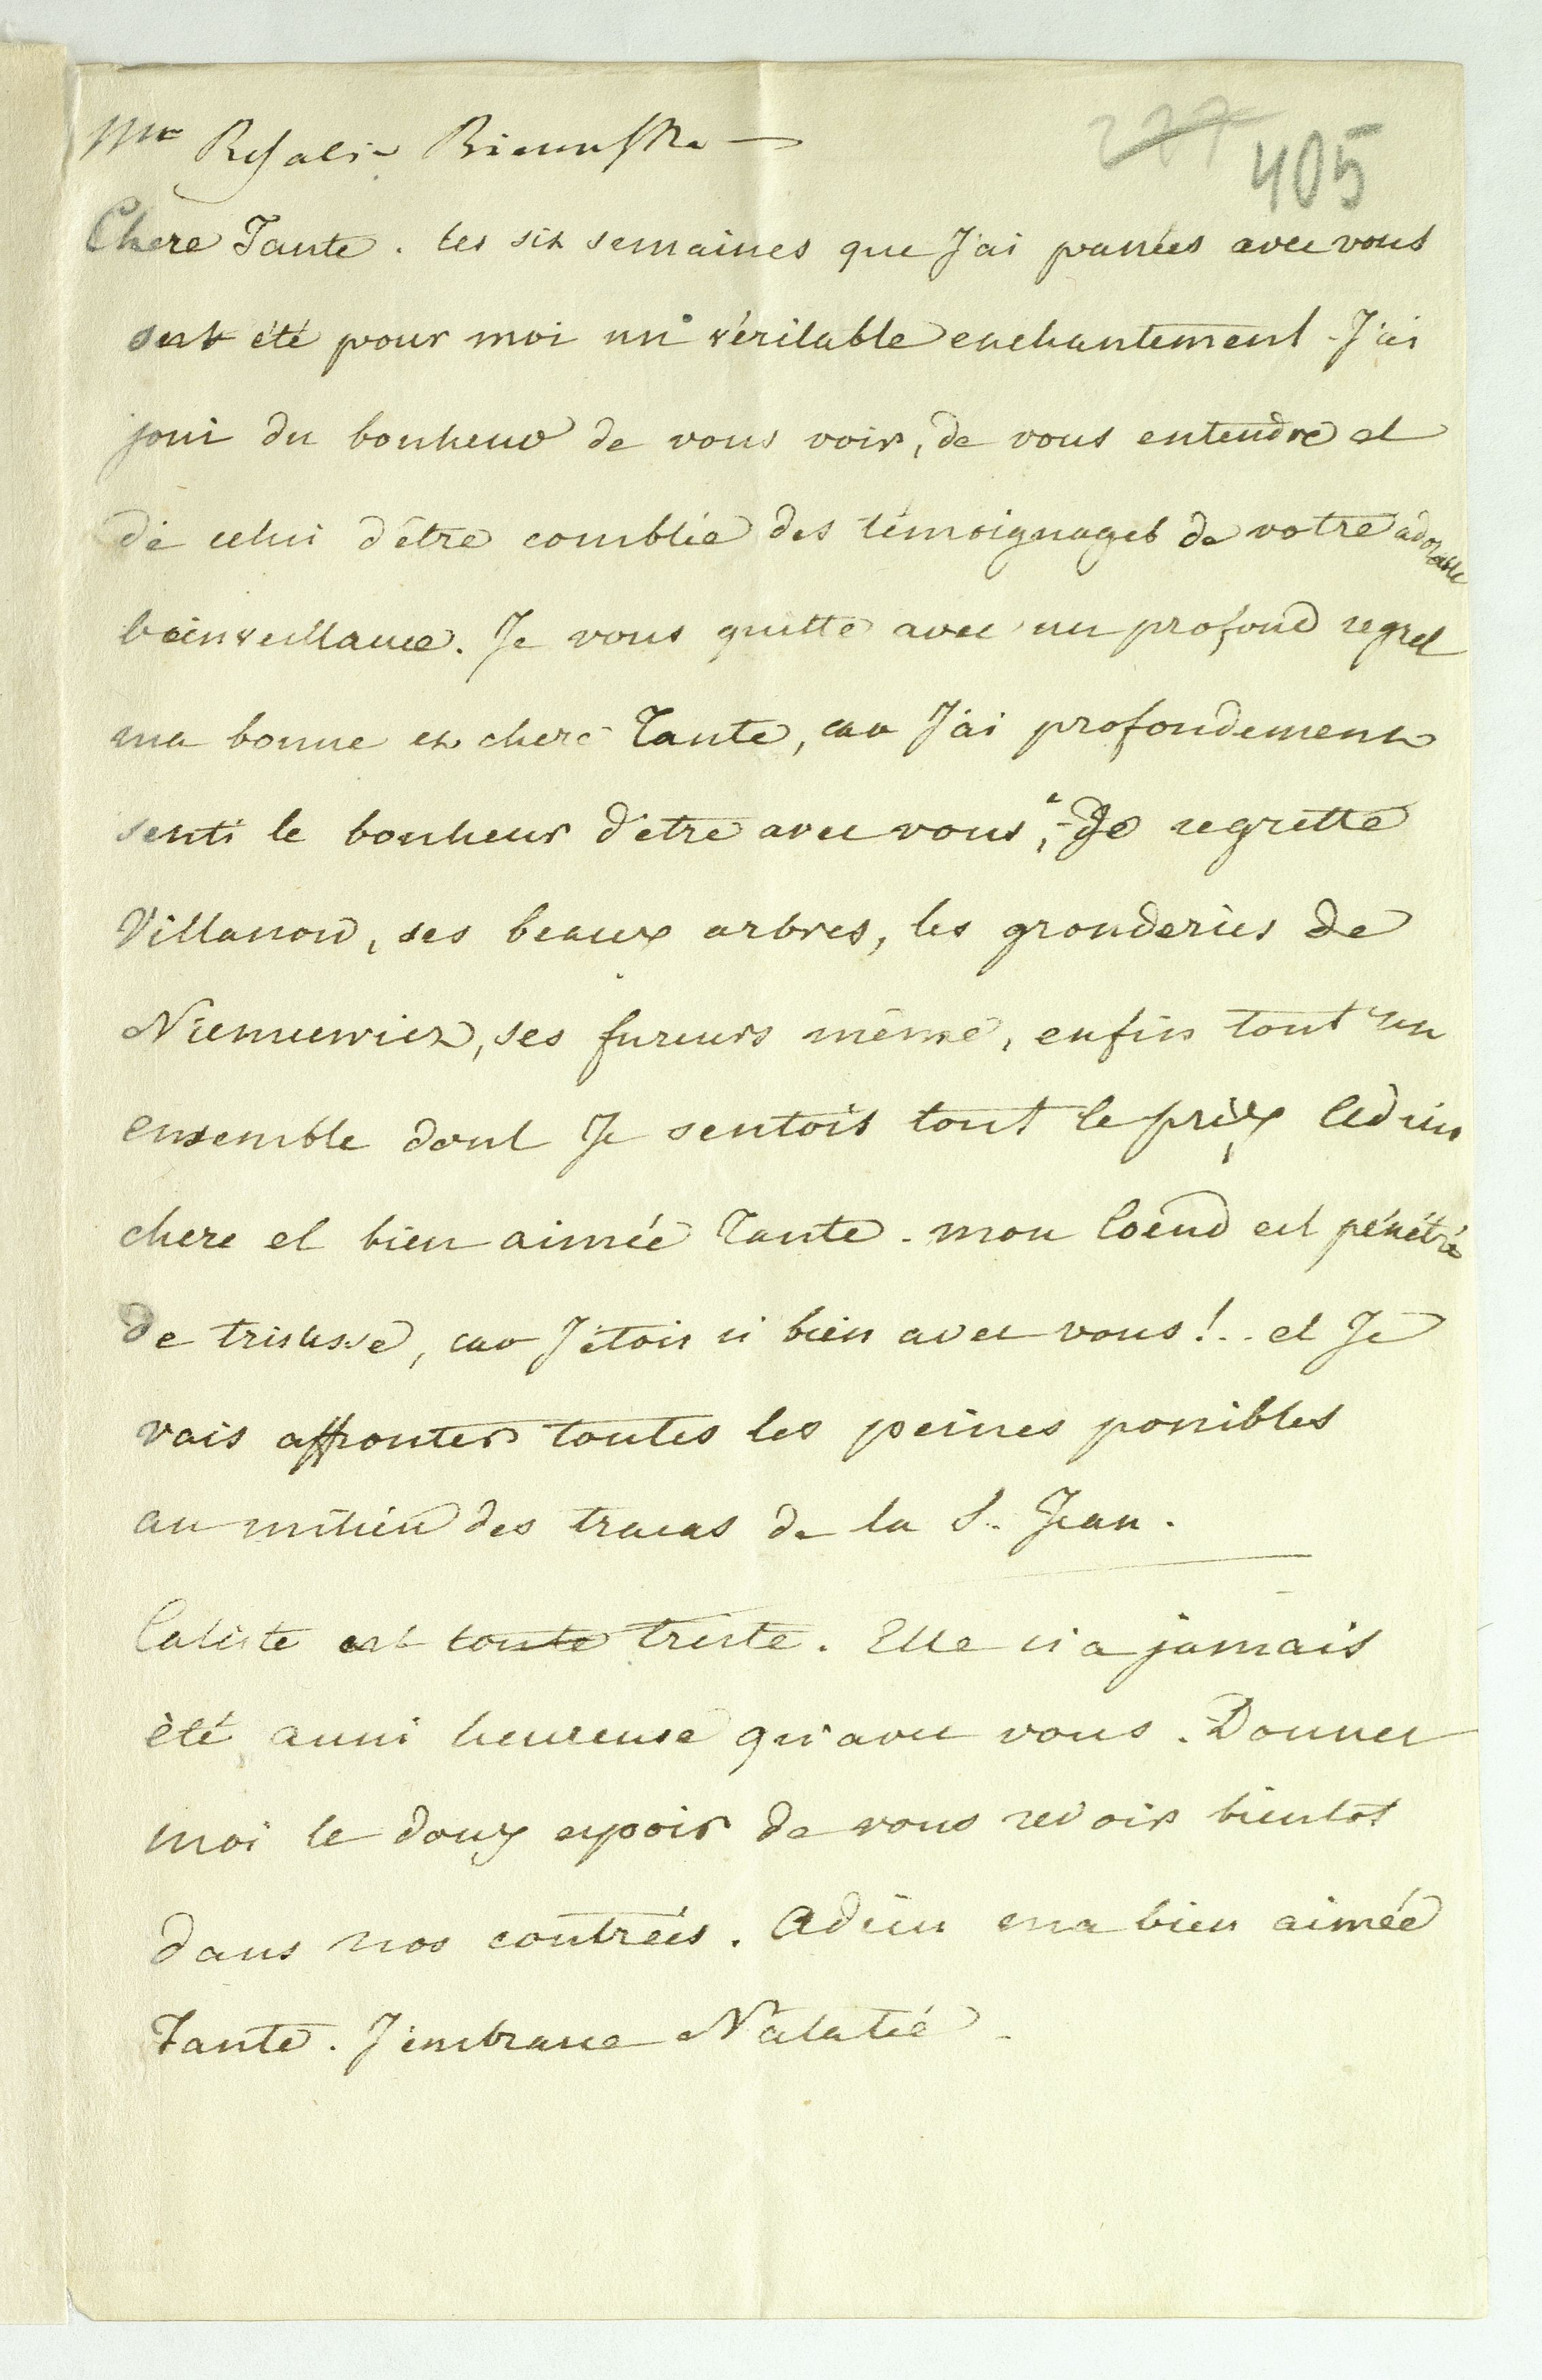 Mme Rosalie Rzewuska
277 405
Chere Tante. les six semaines que J'ai passées avec vous
ont été pour moi un véritable enchantement - J'ai
joui du bonheur de vous voir, de vous entendre et
de celui d'être comblée des témoignages de votre adorable
beinveillance. Je vous quitte avec un profond regret
ma bonne et chere Tante, car J'ai profondement
senti le bonheur d'etre avec vous, - Je regrette
Villanow, ses beaux arbres, les gronderies de
Niemcewicz, ses fureurs même, enfin tout un
ensemble dont Je sentois tout le prix Adieu
chere et bien aimée Tante - mon Coeur est pénétré
de tristesse, car J'étois si bien avec vous!.. et Je
vais affronter toutes les peines possibles
au milieu des tracas de la S. Jean.
Caliste est toute triste. Elle n'a jamais
été aussi heureuse qu'avec vous. Donnez
moi le doux espoir de vous revoir bientot
dans nos contrées. Adieu ma bien aimée
Tante. J'embrasse Natalié